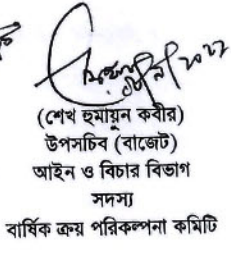 (শেখ হুমায়ুন কবীর)
উপসচিব (বাজেট)
আইন ও বিচার বিভাগ
সদস্য
বার্ষিক ক্রয় পরিকল্পনা কমিটি